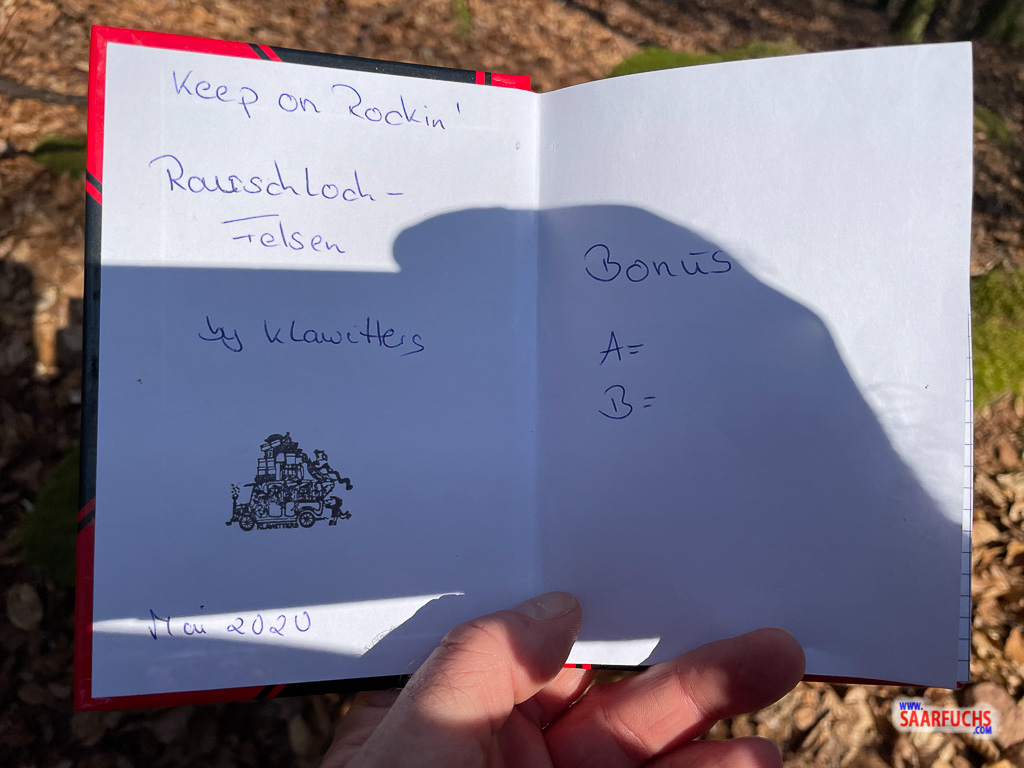 Keep on Rockin'
Rauschloch-
Felsen
by Klawitters
KLAWITTERS
Mai 2020
Bonus
A=
B=
WWW.
SAARFUCHS
.COM